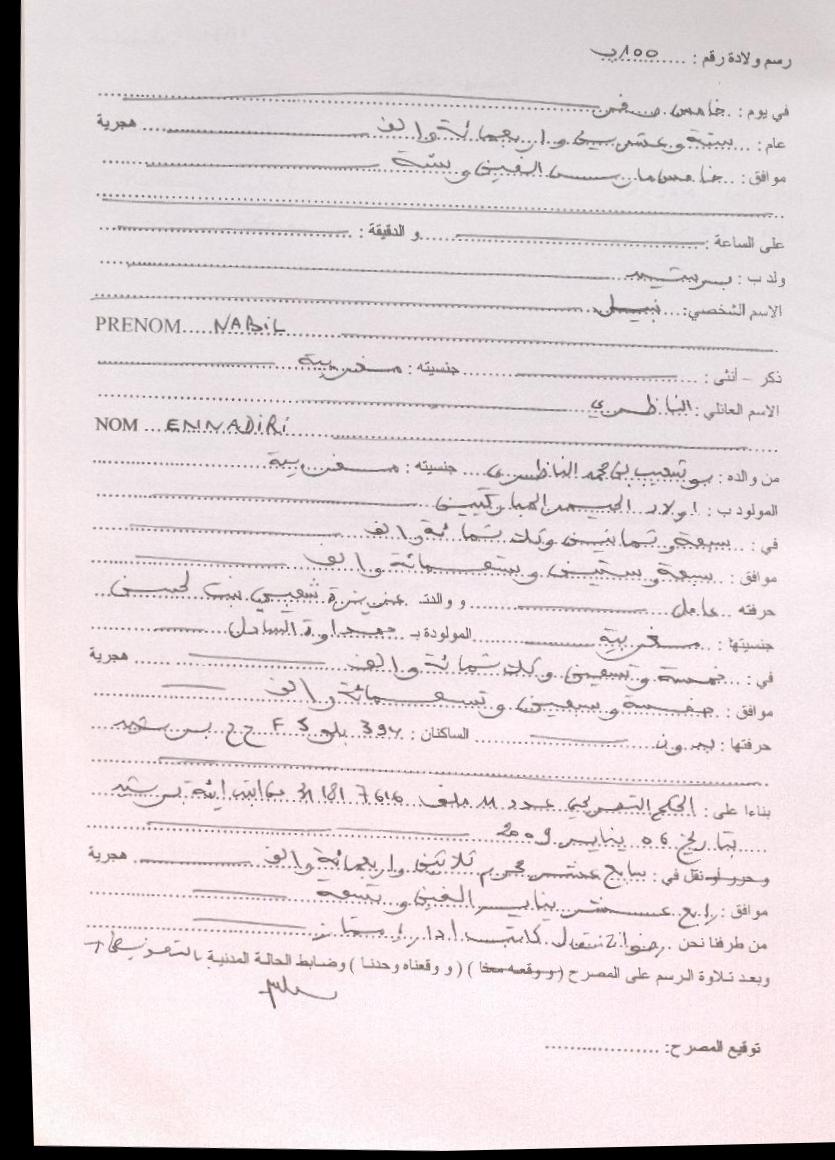 رسم ولادة رقم : 100 ب
في يوم : خامس صفر
عام : ستة وعشرين واربعمائة والف هجرية
موافق : خامس مارس الفين وستة
على الساعة : و الدقيقة :
ولد ب : برشيد
الاسم الشخصي: نبيل
PRENOM NABIL
ذكر – أنثى : جنسيته : مغربية
الاسم العائلي : الناظري
NOM ENNADIRI
من والده : بوشعيب بن محمد الناظري جنسيته : مغربية
المولود ب : اولاد المباركيين
في : سبعة وثمانين وثلاثمائة والف
موافق : سبعة وستين وتسعمائة والف
حرفته عامل و والدته عزيزة شعيبي بنت لحسن
جنسيتها : مغربية المولودة بـ الساحل
في : خمسة وتسعين وثلاثمائة والف هجرية
موافق : خمسة وسبعين وتسعمائة والف
حرفتها : بدون الساكنان : 394 بلوك F S ح ح برشيد
بناءا على : الحكم التصريحي عدد 11 ملف 31 181 7616 ابتدائية برشيد
بتاريخ 06 يناير 2009
وحرر او نقل في : سابع عشر محرم ثلاثين واربعمائة والف هجرية
موافق : رابع عشر يناير الفين وتسعة
من طرفنا نحن رضوان كاتب اداري ممتاز
وبعد تلاوة الرسم على المصرح (ووقعه معنا) (ووقعناه وحدنا) وضابط الحالة المدنية بالتفويض
توقيع المصرح: